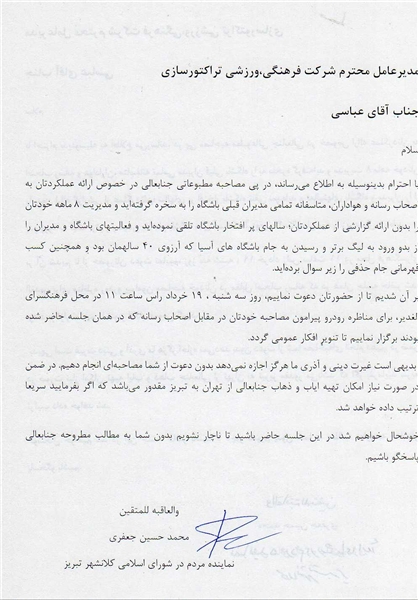 مدیرعامل محترم شرکت فرهنگی،ورزشی تراکتورسازی
جناب آقای عباسی
سلام
با احترام بدینوسیله به اطلاع می‌رساند، در پی مصاحبه مطبوعاتی جنابعالی در خصوص ارائه عملکردتان به
صحاب رسانه و هواداران، متاسفانه تمامی مدیران قبلی باشگاه را به سخره گرفته‌اید و مدیریت ۸ ماهه خودتان
را بدون ارائه گزارشی از عملکردتان؛ سالهای پر افتخار باشگاه تلقی نموده‌اید و فعالیتهای باشگاه و مدیران را
از بدو ورود به لیگ برتر و رسیدن به جام باشگاه های آسیا که آرزوی ۴۰ سالهمان بود و همچنین کسب
قهرمانی جام حذفی را زیر سوال برده‌اید.
بر آن شدیم تا از حضورتان دعوت نماییم، روز سه شنبه ، ۱۹ خرداد راس ساعت ۱۱ در محل فرهنگسرای
لغدیر، برای مناظره رودرو پیرامون مصاحبه خودتان در مقابل اصحاب رسانه که در همان جلسه حاضر شده
بودند برگزار نماییم تا تنویر افکار عمومی گردد.
بدیهی است غیرت دینی و آذری ما هرگز اجازه نمی‌دهد بدون دعوت از شما مصاحبه‌ای انجام دهیم. در ضمن
در صورت نیاز امکان تهیه ایاب و ذهاب جنابعالی از تهران به تبریز مقدور می‌باشد که اگر بفرمایید سریعا
ترتیب داده خواهد شد.
خوشحال خواهیم شد در این جلسه حاضر باشید تا ناچار نشویم بدون شما به مطالب مطروحه جنابعالی
پاسخگو باشیم.
والعاقبه للمتقین
محمد حسین جعفری
نماینده مردم در شورای اسلامی کلانشهر تبریز